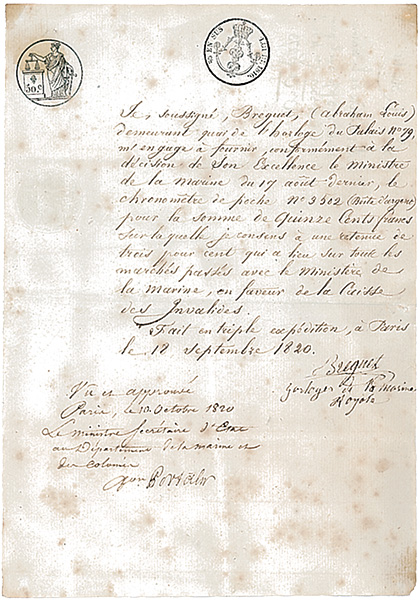 50 c
EN SUS
Je, soussigné, Breguet, (abraham Louis)
demeurant quai de l'horloge du Palais N° 79,
m'engage à fournir, conformément à la
décision de Son Excellence le Ministre
de la Marine du 17 août dernier, le
chronomètre de poche N° 3502 (Boîte d'argent)
pour la somme de Quinze Cents francs
Sur laquelle je consens à une retenue de
trois pour cent qui a lieu sur tous les
marchés passés avec le Ministère de
la Marine, en faveur de la Caisse
des Invalides.
Fait en triple expédition, à Paris
le 18 Septembre 1820.
Breguet
horloger de la Marine
Royale
Vu et approuvé
Paris, le 10 Octobre 1820
Le ministre Secrétaire d'Etat
au Département de la marine et
des Colonies
Portal